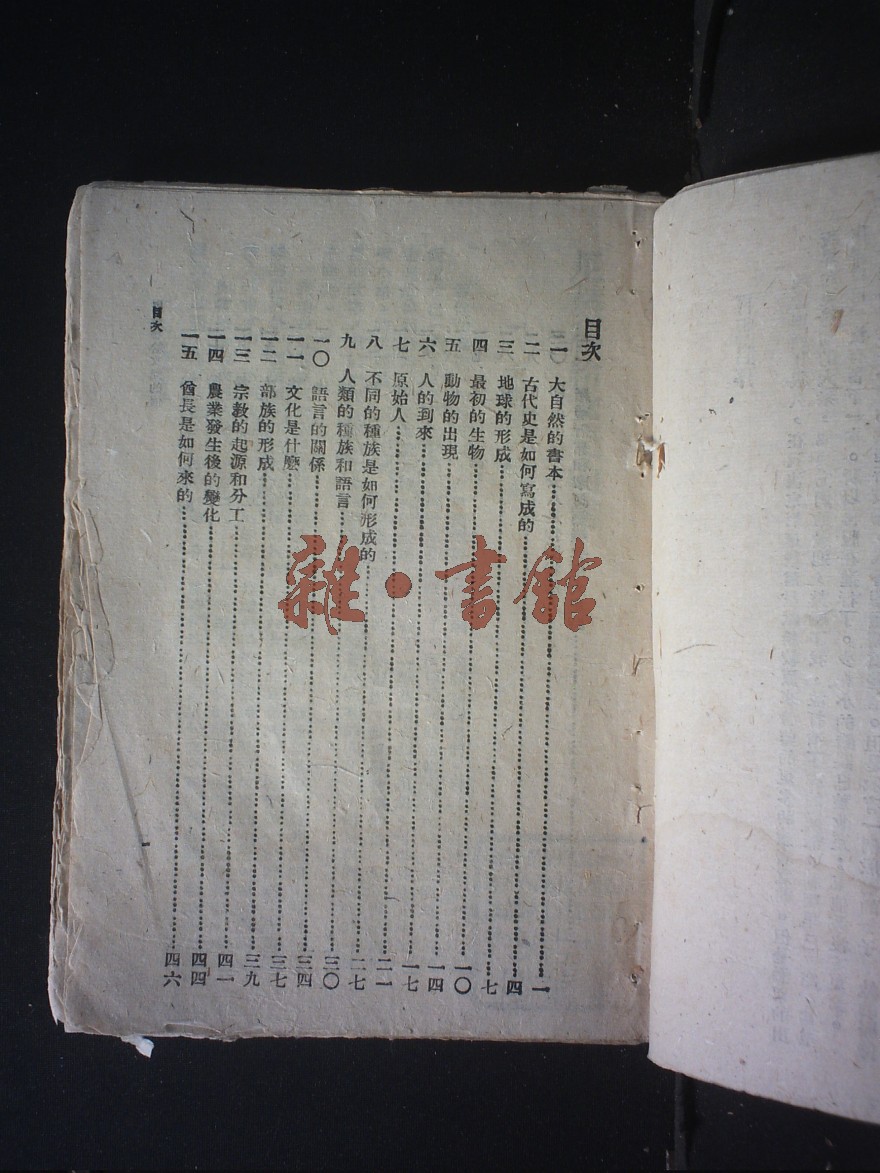 目次
一 大自然的書本……一
二 古代史是如何寫成的……四
三 地球的形成……七
四 最初的生物……一〇
五 動物的出現……一四
六 人的到來……一七
七 原始人……二一
八 不同的種族是如何形成的……二七
九 人類的種族和語言……三〇
一〇 語言的關係……三四
一一 文化是什麼……三七
一二 部族的形成……三九
一三 宗教的起源和分工……四一
一四 農業發生後的變化……四四
一五 酋長是如何來的……四六
目次
一
雜·書館